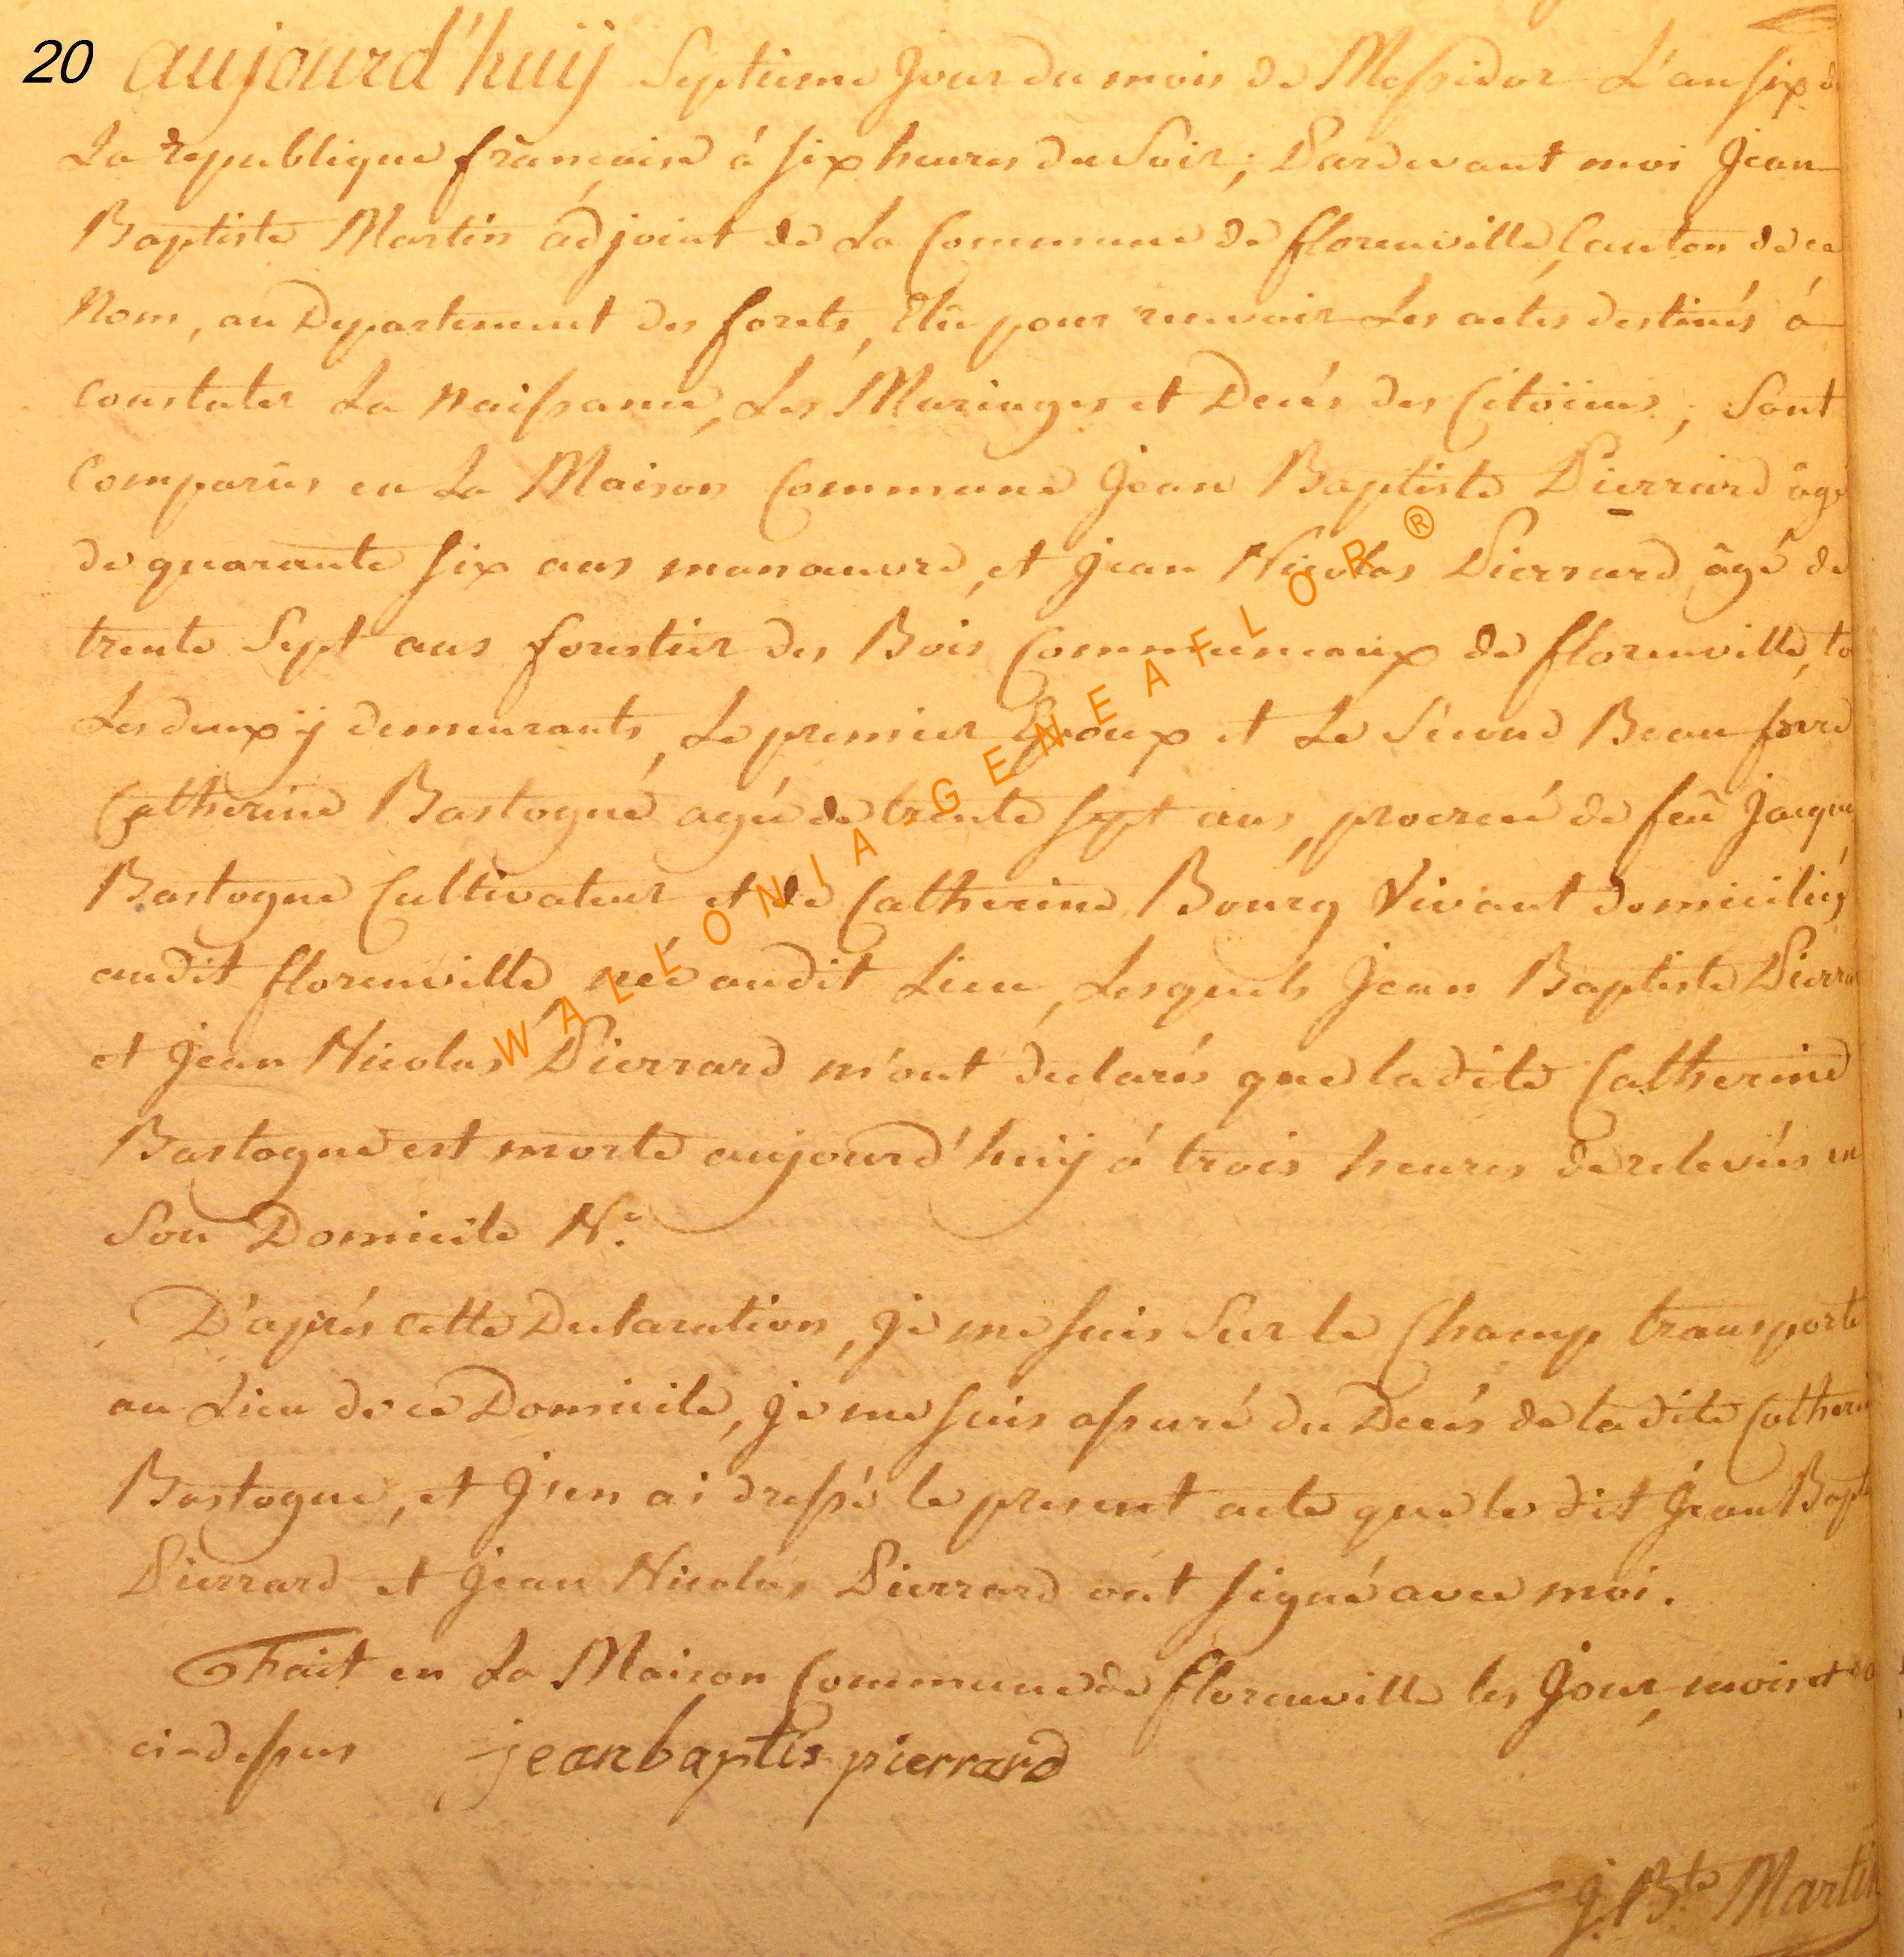 20 aujourd'huij Septieme Jour du mois de Messidor L'an six de
La republique françoise à six heures du Soir; Pardevant moi Jean
Baptiste Martin adjoint de La Commune de florenville, Canton de ce
Nom, au Departement des forets, Elû pour recevoir Les actes destinés à
constater La Naissance, Les Mariages et Decés des Citöiens; Sont
Comparûs en La Maison Commune Jean Baptiste Pierrard âgé
de quarante six ans manœuvre, et Jean Nicolas Pierrard âgé de
trente Sept ans forestier des Bois Communeaux de florenville, to
Les deux ÿ demeurants, Le premier Epoux et Le Second Beaufrere
Catherine Bastogne agée de trente sept ans, procreé de feû Jacque
Bastogne Cultivateur et de Catherine Bourg Vivant domiciliés
audit florenville née audit Lieu, Lesquels Jean Baptiste Pierra
et Jean Nicolas Pierrard m'ont declarés que ladite Catherine
Bastogne est morte aujourd'huij à trois heures de relevées en
Son Domicile N.º
D'aprés cette Declaration, je me suis Sur le Champ transporté
au Lieu de ce Domicile, je me suis assuré du Decés de ladite Catheri
Bastogne, et j'en ai dressé le present acte que le dit Jean Bapt
Pierrard et Jean Nicolas Pierrard ont signé avec moi.
Fait en La Maison Commune de florenville les Jour, mois et
ci-dessus jean baptis pierrard
J. Bte Martin
WALLONIA-GENEAFLOR ®